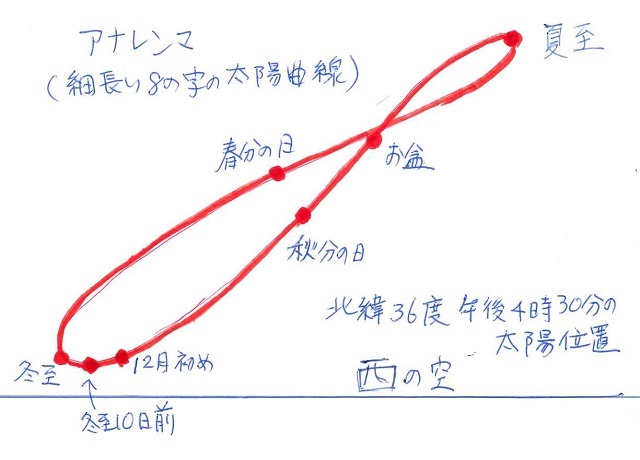 アナレンマ
(細長い8の字の太陽曲線)
夏至
春分の日
お盆
秋分の日
北緯36度 午後4時30分の
太陽位置
西の空
冬至
12月初め
↑
冬至10日前